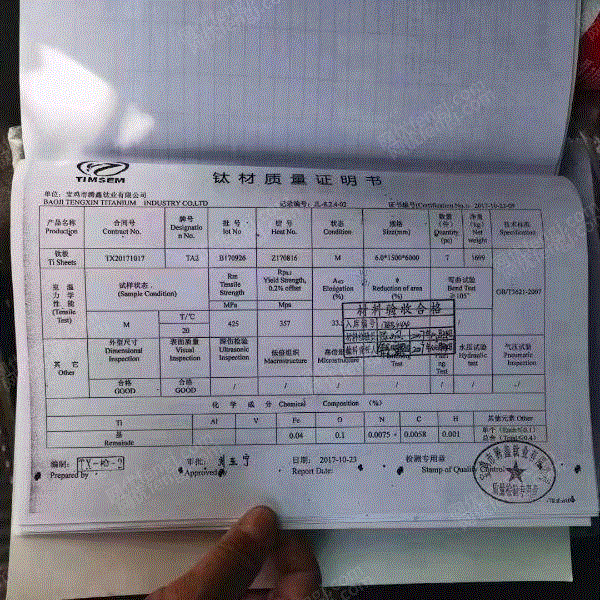 TIMSEM
钛材质量证明书
单位：宝鸡市腾鑫钛业有限公司
BAOJI TENGXIN TITANIUM INDUSTRY CO.LTD
记录编号：JL-8.2.4-02
证书编号(Certification No.): 2017-10-23-05
产品名称 Production
合同号 Contract No.
牌号 Designation No.
批号 lot No
炉号 Heat No.
状态 Condition
规格 Size(mm)
数量 (件) Quantity (pc)
净重 (kg) Net weight
技术标准 Specification
钛板 Ti Sheets
TX20171017
TA2
B170926
Z170816
M
6.0*1500*6000
7
1699
GB/T3621-2007
室温力学性能 (Tensile Test)
试样状态 (Sample Condition)
Rm Tensile Strength MPa
Yield Strength, 0.2% offset Mpa
Elongation (%)
Reduction of area (%)
弯曲试验 Bend Test ≥105°
T/℃
M
20
425
357
材料验收合格
入库编号
其它 Other
外型尺寸 Dimensional Inspection
表面质量 Visual Inspection
探伤检验 Ultrasonic Inspection
低倍组织 Macrostructure
高倍组织 Microstructure
水压试验 Hydraulic test
气压试验 Pneumatic Inspection
合格 GOOD
合格 GOOD
/
/
/
/
/
化学成分 Chemical Composition (%)
Ti
Al
V
Fe
O
N
C
H
其他元素 Other
基 Remainde
0.04
0.1
0.0075
0.0058
0.001
单个 (Each≤0.1)
总合 (Total≤0.4)
编制：
Prepared by
审批：
Approved
日期： 2017-10-23
Report Date:
检测专用章
Stamp of Quality Control
质量检测专用章